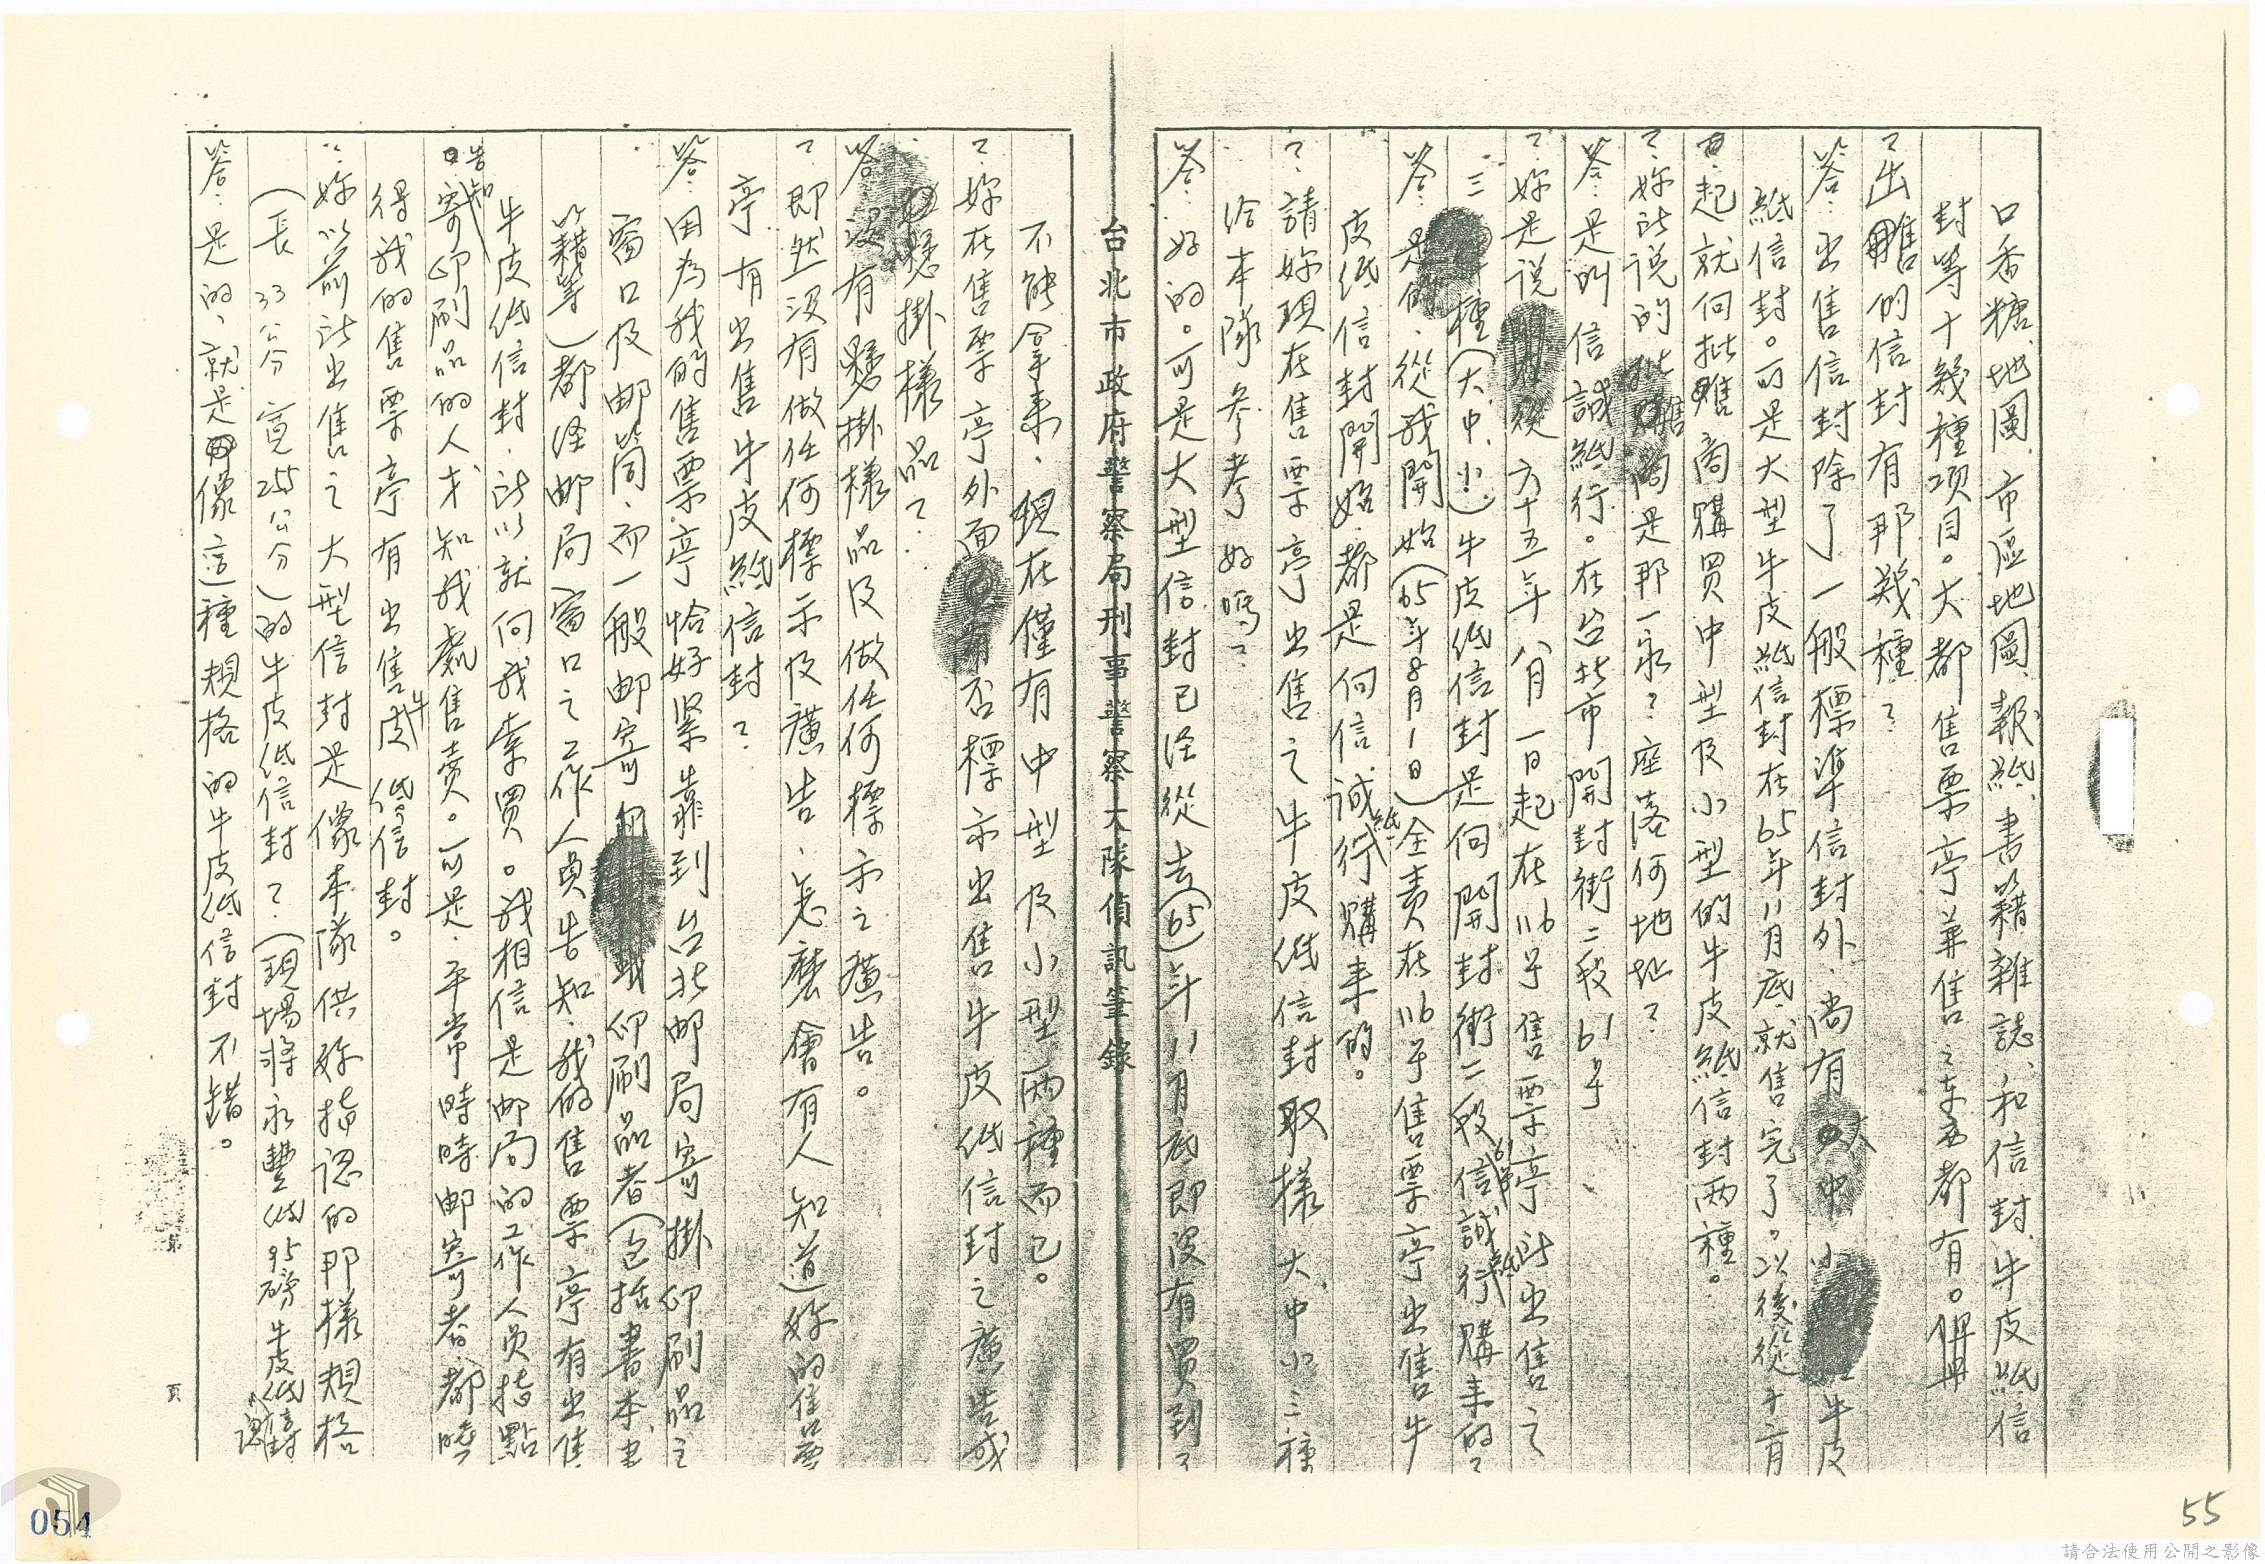 口香糖、地圖、市區地圖、報紙、書籍雜誌、和信封、牛皮紙信
封等十幾種項目。大都售票亭兼售之東西都有。
？出售的信封有那幾種？
答：出售信封除了一般標準信封外、尚有中、小牛皮
紙信封。可是大型牛皮紙信封在65年11月底就售完了。以後從十二月
起就向批售商購買中型及小型的牛皮紙信封兩種。
？妳所説的批售商是那一家？座落何地址？
答：是叫信誠紙行。在台北市開封街二段61号
？妳是说從六十五年八月一日起在116号售票亭所出售之
三種（大、中、小）牛皮紙信封是向開封街二段61号信誠紙行購来的？
答：是的、從我開始（65年8月1日）全責在116号售票亭出售牛
皮紙信封開始、都是向信誠紙行購来的。
？請妳現在售票亭出售之牛皮紙信封取樣大、中、小三種
給本隊參考好嗎？
答：好的。可是大型信封已经從去（65）年11月底即没有買到了
台北市政府警察局刑事警察大隊偵訊筆錄
不能拿来、現在僅有中型及小型兩種而已。
？妳在售票亭外面有否標示出售牛皮紙信封之廣告或
懸掛樣品？
答：没有懸掛樣品及做任何標示之廣告。
？即然没有做任何標示及廣告、怎麼會有人知道妳的售票
亭有出售牛皮紙信封？
答：因為我的售票亭恰好紧靠到台北邮局寄掛印刷品之
窗口及邮筒、而一般邮寄印刷品者（包括書本、書
籍等）都经邮局窗口之工作人員告知、我的售票亭有出售
牛皮紙信封、所以就向我來買。我相信是邮局的工作人员指點
告知寄印刷品的人才知我處售卖。可是、平常時時邮寄者都曉
得我的售票亭有出售牛皮紙信封。
？妳以前所出售之大型信封是像本隊供妳指認的那樣規格
（長33公分寬25.5公分）的牛皮紙信封？（現場將永豐紙95磅牛皮紙信封
答：是的、就是像這種規格的牛皮紙信封不錯。
第
頁
054
55
請合法使用公開之影像